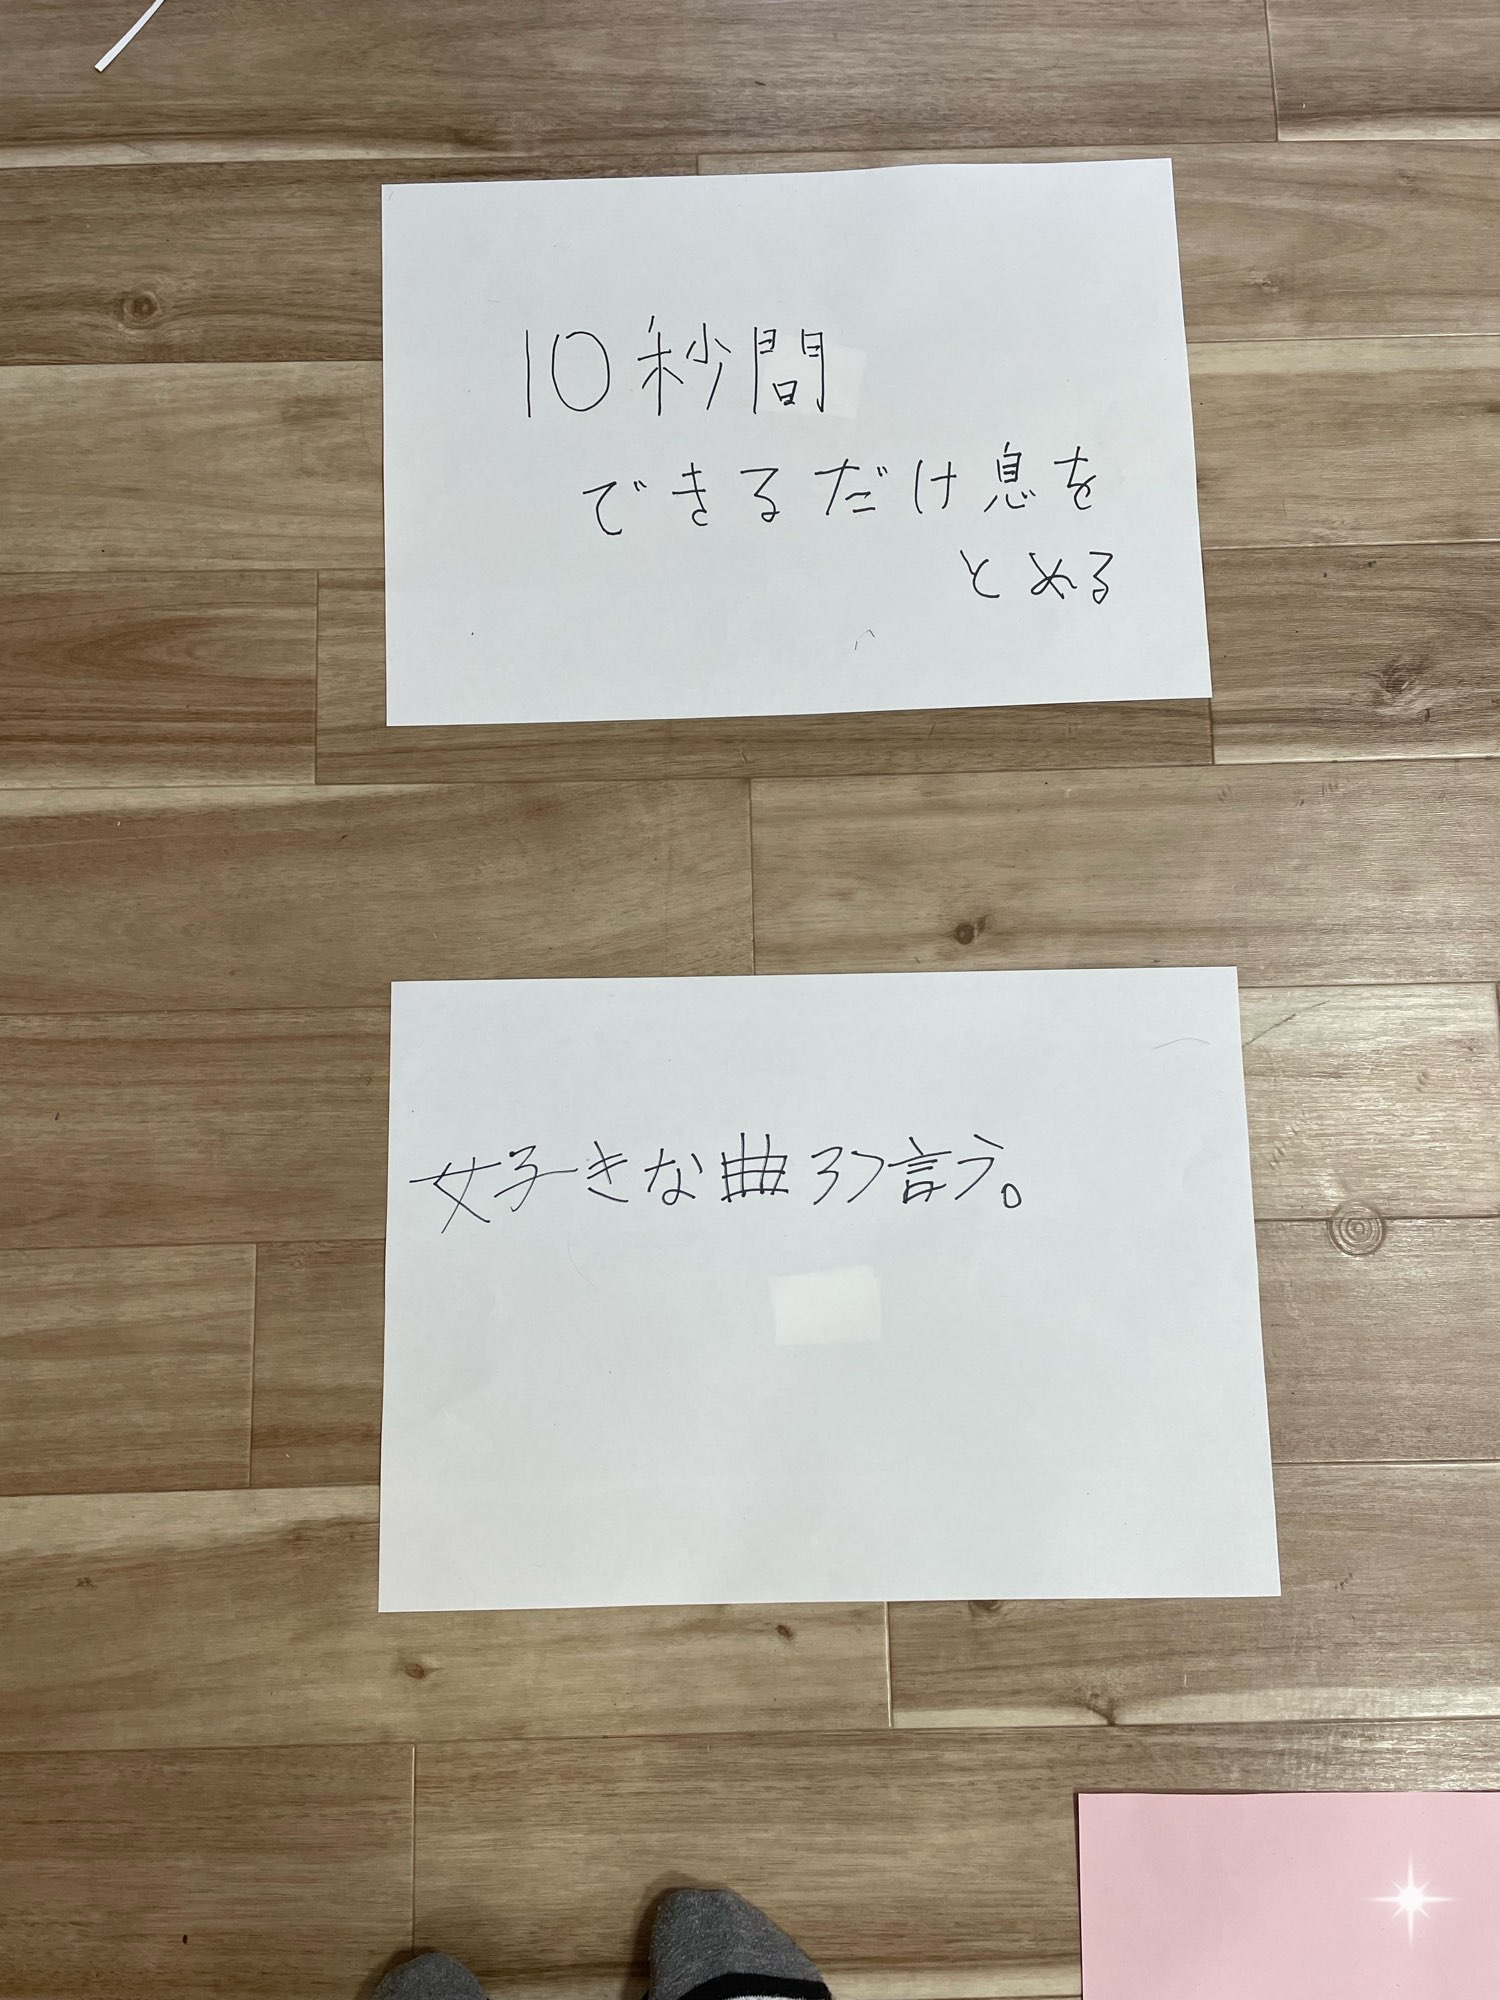 10秒間
できるだけ息を
とめる
好きな曲3つ言う。